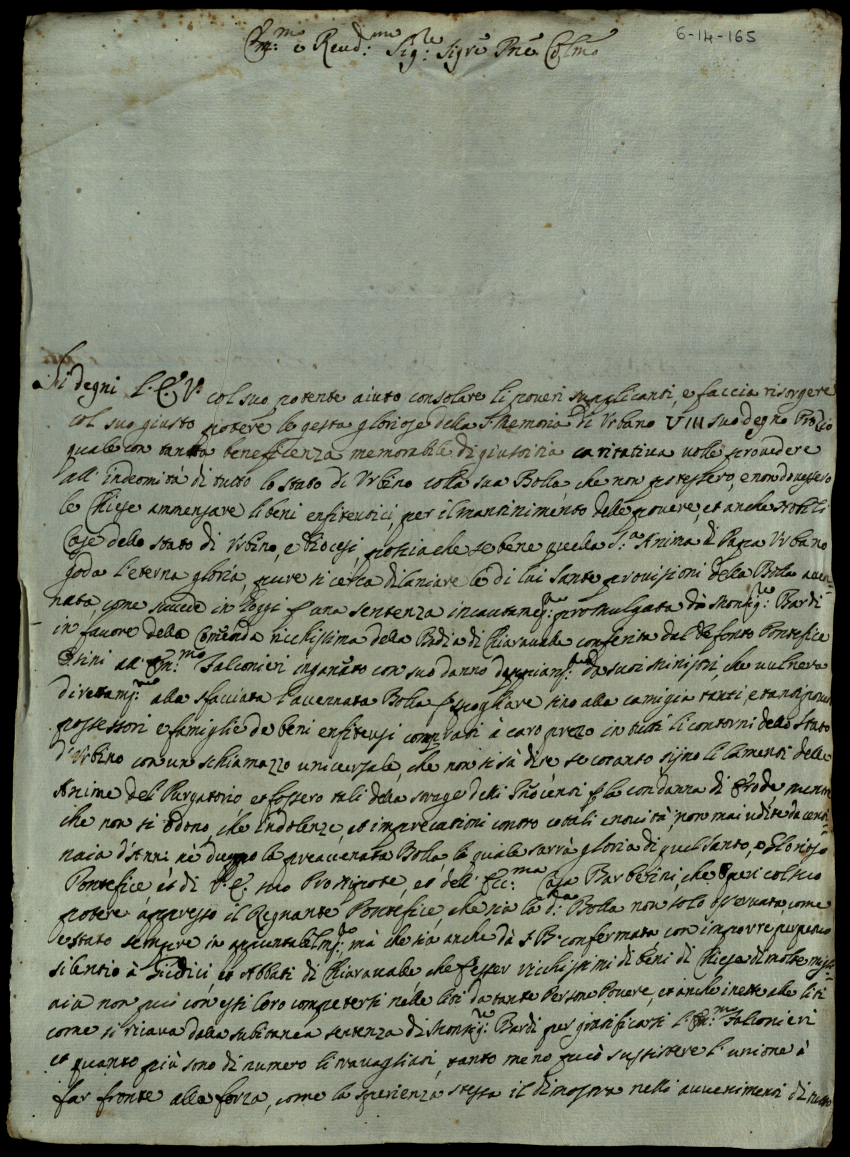 6-14-165
Em:mo e Revd:mo Sig:re Sigre Pne Colmo
Si degni l'E.V. col suo potente aiuto consolare li poveri supplicanti, e faccia risorgere
col suo giusto potere le gesta gloriose della S. Memoria di Urbano VIII suo degno
quale con tanta beneficenza memorabile di giustitia caritativa volle provedere
all'indemnità di tutto lo Stato di Urbino colla sua Bolla che non potessero, e non dovessero
le Chiese ammensare li beni enfiteutici, per il mantinimento delle povere, et anche Nobili
Case dello stato di Urbino, e Diocesi, postia che se bene quella S.a Anima di Papa Urbano
goda l'eterna gloria, pure si cerca dilaniare le di lui Sante provisioni della Bolla accen-
nata, come succede in oggi p una sentenza incautam:te promulgata da Monsig:re Bardi
in favore della Comenda ricchissima della Badia di Chiaravalle conferita dal defonto Pontefice
Orsini all'Em:mo Falconieri inganato con suo danno da suoi Ministri, che vulnera
direttam:te alla sfacciata l'accennata Bolla p spogliare sino alla camigia tanti, e tanti poveri
possessori e famiglie de beni enfiteusi comprati à caro prezo in tutti li contorni dello Stato
d'Urbino con un schiamazzo universale, che non si sà dire se cotanto sijno li lamenti delle
Anime del Purgatorio et fossero tali della strage delli Inocenti p la condanna di Erode mentre
che non si odono, che indolenze, et imprecationi contro cotali iniquità non mai udite da centi-
naia d'Anni nè dopo la preaccenata Bolla, la quale sarrà gloria di quel Santo, e Glorioso
Pontefice, et di V.E. suo Pronipote, et dell'Ecc:ma Casa Barberini, che opri col suo
potere appresso il Regnante Pontefice, che sia la d.a Bolla non solo osservata, come
è stato sempre in apuntabilm:te, mà che sia anche dà S.B. confermata con imporre perpetuo
silentio à Giudici, et Abbati di Chiaravalle che p esser ricchissimi di beni di Chiesa di molte migli-
aia non può con essi loro competersi nelle liti da tante Persone Povere, et anche inette alle liti
come si ricava dalla subitanea sentenza di Monsig:re Bardi per gratificarsi l'Em:mo Falconieri
et quanto più sono di numero li travagliati, tanto meno può sussistere l'unione à
far fronte alla forza, come la sperienza stessa il dimostra nelli avvenimenti di